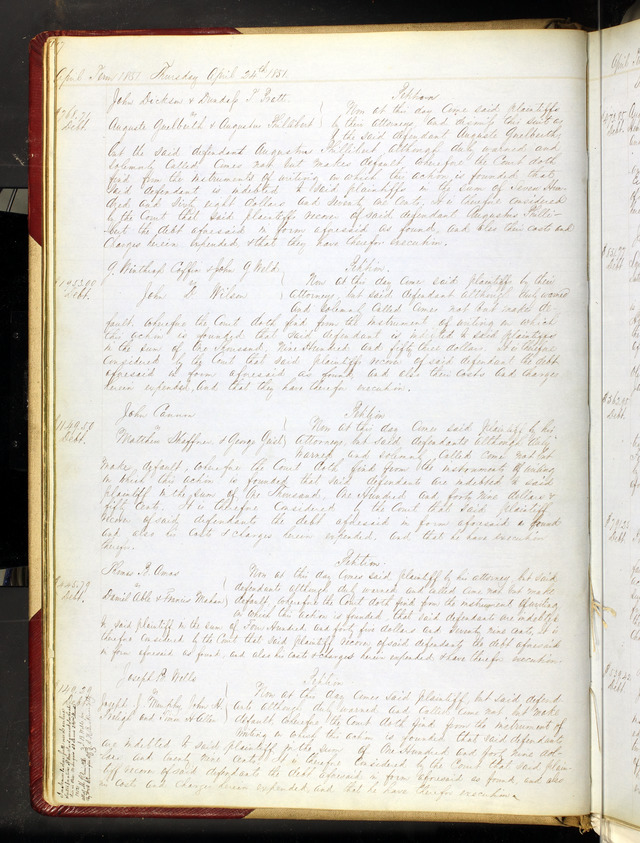 April Term 1851. Thursday April 24th 1851.
John Dickson &
Petition
$768.71
Debt.
vs
Now at this day Come said plaintiffs
Auguste Guelberth & Augustus
by their Attorney and dismiss this suit as
to the said defendant Auguste Guelberth,
but the said defendant Augustus although duly warned and
solemnly Called Comes not but makes default, wherefore the Court doth
find from the instruments of writing on which this action is founded, that
said defendant is indebted to said plaintiffs in the sum of Seven Hun-
dred and Sixty eight dollars and Seventy one Cents, it is therefore considered
by the Court that said plaintiffs recover of said defendant Augustus
the debt aforesaid in form aforesaid as found, and also their costs and
Charges herein expended & that they have therefor execution.
G. Winthrop Coffin & John G. Weld
Petition.
$1953.00
Debt.
vs
Now at this day Come said plaintiffs by their
John D. Wilson
Attorney, but said defendant although duly warned
and solemnly Called Comes not but makes de-
fault. wherefore the Court doth find from the instrument of writing on which
this action is founded that said defendant is indebted to said plaintiffs
in the sum of One Thousand Nine Hundred and fifty three dollars. It is therefore
Considered by the Court that said plaintiffs recover of said defendant the debt
aforesaid in form aforesaid as found and also their Costs and Charges
herein expended, And that they have therefor execution.
John Cannon
Petition
$1149.50
Debt.
vs
Now at this day Comes said plaintiff by his
Matthew & George
Attorney, but said defendants although duly
warned and solemnly Called Come not but
make default, wherefore the Court doth find from the instruments of writing
on which this action is founded that said defendants are indebted to said
plaintiff in the sum of One Thousand, One Hundred and forty nine dollars &
fifty Cents. It is therefore Considered by the Court that said plaintiff
recover of said defendants the debt aforesaid in form aforesaid as found
and also his Costs & charges herein expended. and that he have execution
therefor.
Petition.
Thomas R.
Now at this day Comes said plaintiff by his attorney, but said
$445.79
Debt.
vs
defendants although duly warned and called Come not but make
Daniel Able & Francis
default, wherefore the Court doth find from the instrument of writing
on which this action is founded, that said defendants are indebted
to said plaintiff in the sum of Four Hundred and forty five dollars and Seventy nine cents, it is
therefore Considered by the Court that said plaintiff recover of said defendants the debt aforesaid
in form aforesaid as found, and also his Costs & charges herein expended & have therefor execution.
Joseph B. Wells
Petition
$149.29
vs
Now at this day Comes said plaintiff, but said defend-
Joseph J. Murphy, John H.
ants although duly warned and Called Come not but make
default wherefore the Court doth find from the instrument of
writing on which this action is founded that said defendants
are indebted to said plaintiff in the sum of One Hundred and forty nine dol-
lars and twenty nine Cents. It is therefore Considered by the Court that said plain-
tiff recover of said defendants the debt aforesaid in form aforesaid as found, and also
his costs and Charges herein expended and that he have therefor execution.